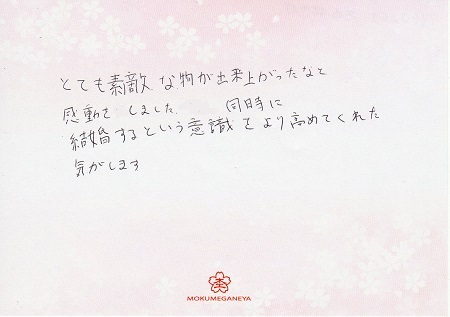 とても素敵な物が出来上がったなと
感動を しました。 同時に
結婚するという意識をより高めてくれた
気がします
MOKUMEGANEYA